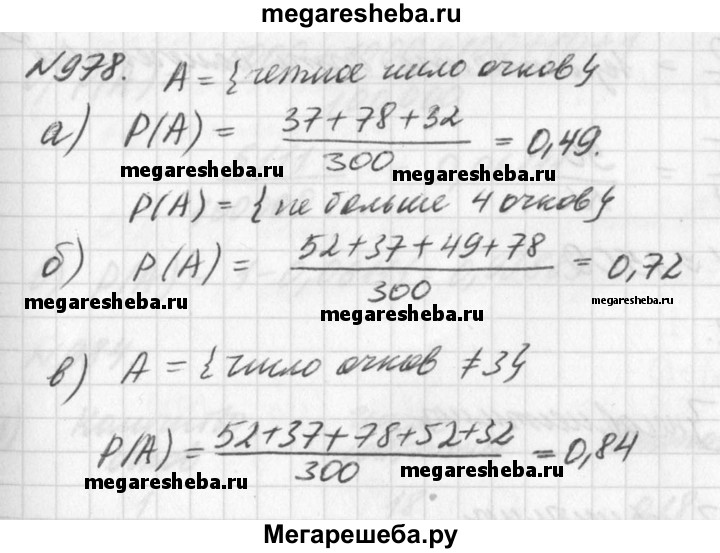 megaresheba.ru
№978. A = { четное число очков }
а) P(A) = 37+78+32 / 300 = 0,49.
megaresheba.ru megaresheba.ru
P(A) = { не больше 4 очков }
б) P(A) = 52+37+49+78 / 300 = 0,72
megaresheba.ru megaresheba.ru megaresheba.ru
в) A = { число очков ≠3 }
P(A) = 52+37+78+52+32 / 300 = 0,84
megaresheba.ru megaresheba.ru
Мегарешеба.ру